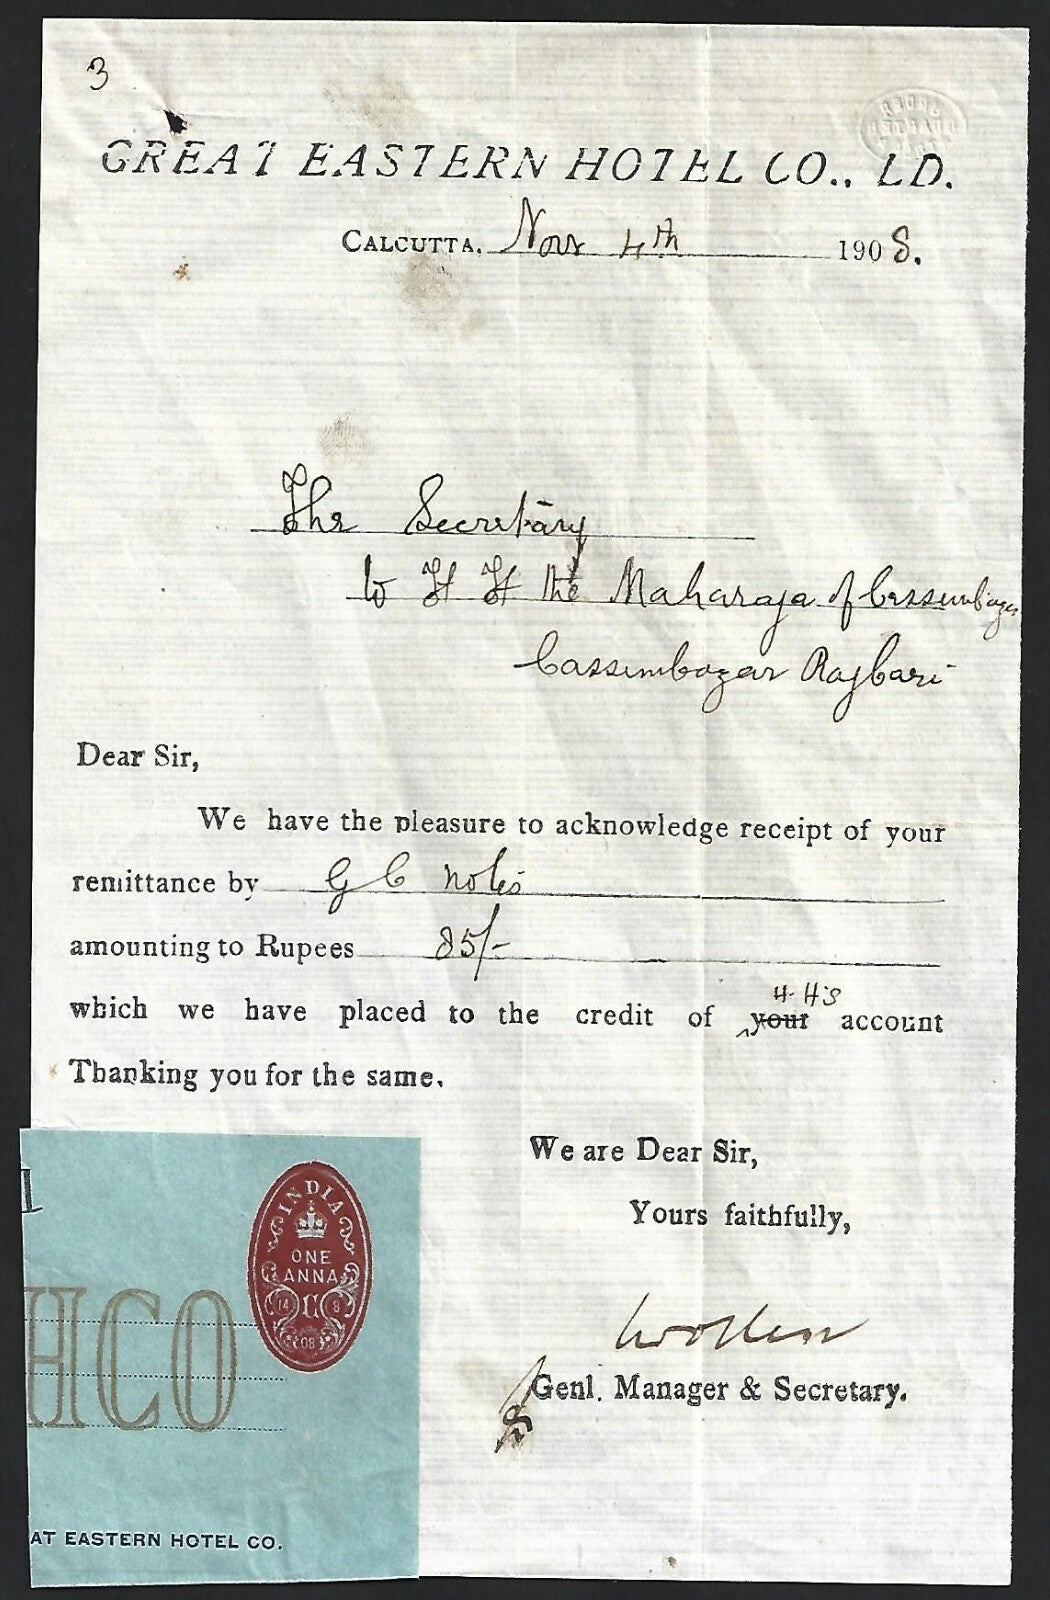 3
GREAT EASTERN HOTEL CO., LD.
CALCUTTA, Nov 4th 1908.
The Secretary
to H H the Maharaja of Cassimbazar
Cassimbazar Rajbari
Dear Sir,
We have the pleasure to acknowledge receipt of your
remittance by G C notes
amounting to Rupees 85/-
H. H's
which we have placed to the credit of your account
Thanking you for the same.
We are Dear Sir,
Yours faithfully,
Genl. Manager & Secretary.
INDIA
ONE
ANNA
14 C 8
08
HCO
AT EASTERN HOTEL CO.